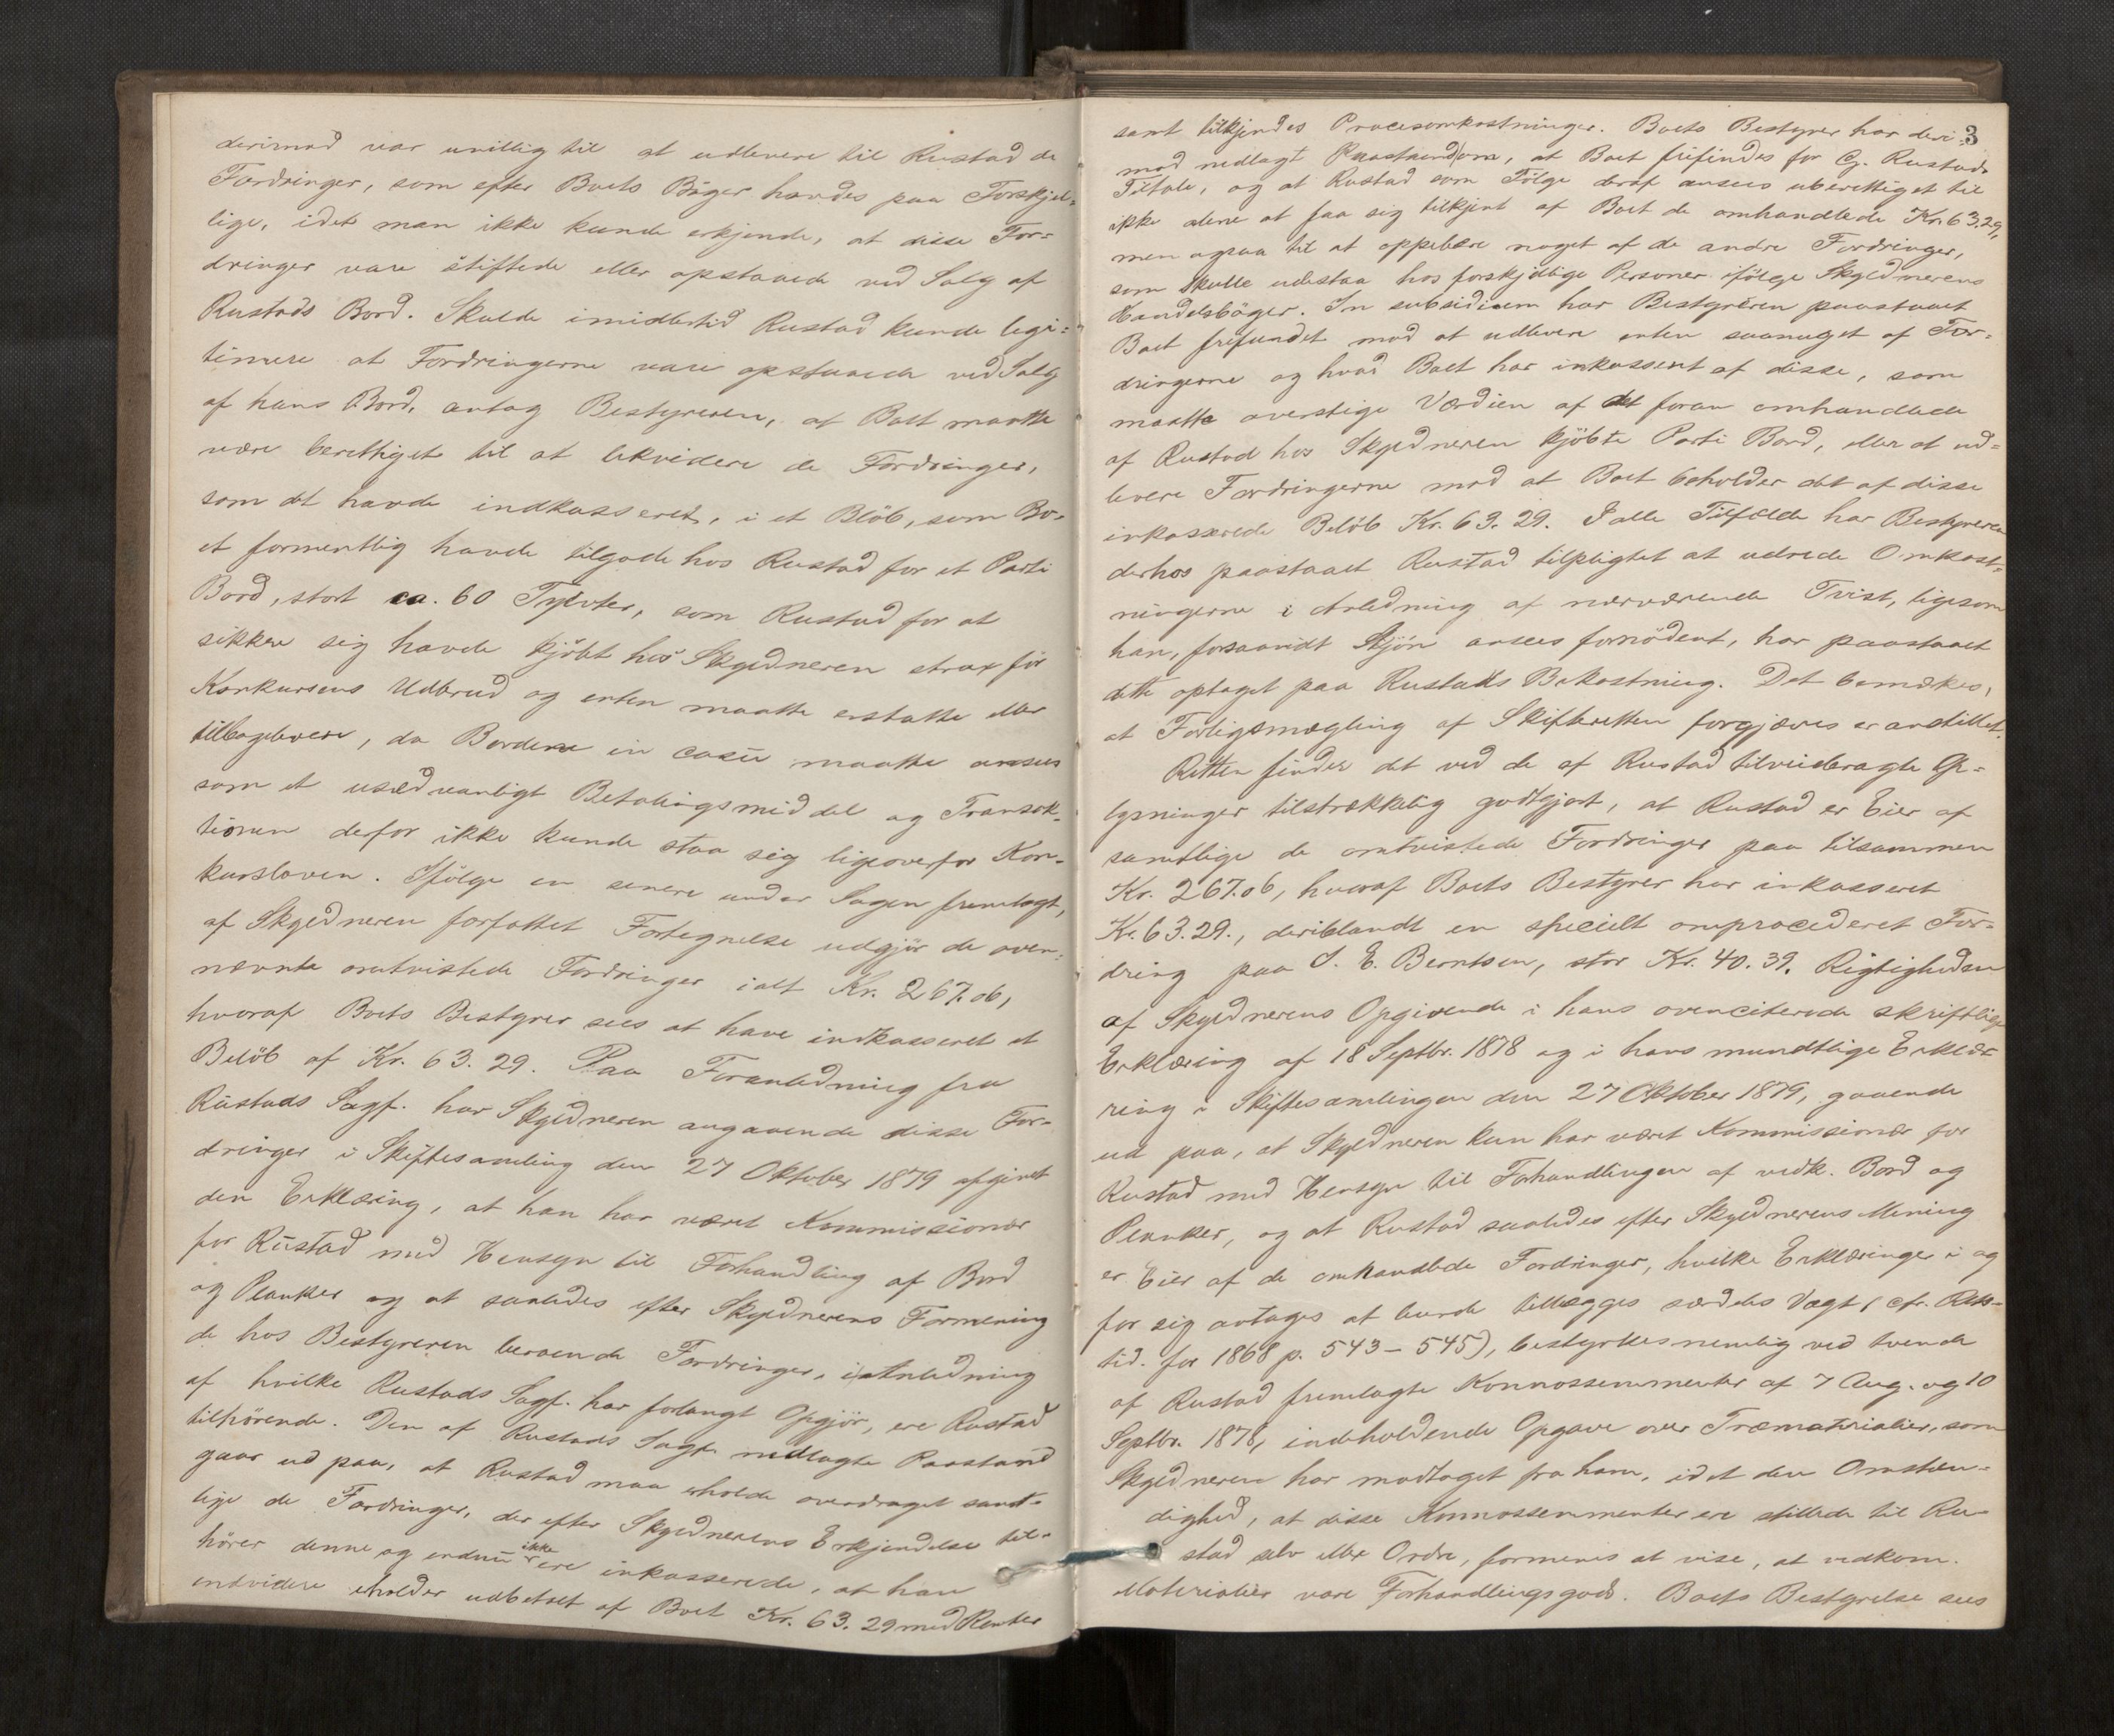 derimod var uvillig til at udlevere til Rustad de
Fordringer, som efter Boets Bøger havdes paa Forskjel=
lige, idet man ikke kunde erkjende, at disse For=
dringer vare stiftede eller opstaaede ved Salg af
Rustads Bord. Skulde imidlertid Rustad kunde legi=
timere at Fordringerne vare opstaaede ved Salg
af hans Bord, antog Bestyreren, at Boet maatte
være berettiget til at likvidere de Fordringer,
som det havde indkasseret, i et Bløb, som Bo-
et formentlig havde tilgode hos Rustad for et Parti
Bord, stort ca. 60 Tylvter, som Rustad for at
sikkre sig havde kjøbt hos Skyldneren strax før
Konkursens Udbrud og enten maatte erstatte eller
tilbagelevere, da Bordene in casu maatte ansees
som et usædvanligt Betalingsmiddel og Transak-
tionen derfor ikke kunde staa sig ligeoverfor Kon-
kursloven. Ifølge en senere under Sagen fremlagt,
af Skyldneren forfattet Fortegnelse udgjør de oven-
nævnte omtvistede Fordringer ialt Kr. 267.06,
hvoraf Boets Bestyrer sees at have indkasseret et
Beløb af Kr. 63.29. Paa Foranledning fra
Rustads Sagf. har Skyldneren angaaende disse For-
dringer i Skiftesamling den 27 Oktober 1879 afgivet
den Erklæring, at han har været Kommissionær
for Rustad med Hensyn til Forhandling af Bord
og Planker og at saaledes efter Skyldnerens Formening
de hos Bestyreren beroende Fordringer, i Anledning
af hvilke Rustads Sagf. har forlangt Opgjør, ere Rustad
tilhørende. Den af Rustads Sagf. nedlagte Paastand
gaar ud paa, at Rustad maa erholde overdraget samt-
lige de Fordringer, der efter Skyldnerens Erkjendelse til-
hører denne og endnu ikke ere inkasserede, at han
endvidere erholder udbetalt af Boet Kr. 63.29 med Renter
3
samt tilkjendes Procesomkostninger. Boets Bestyrer har deri-
mod nedlagt Paastand om, at Boet frifindes for G. Rustads
Tiltale, og at Rustad som Følge deraf ansees uberettiget til
ikke alene at faa sig tilkjent af Boet de omhandlede Kr. 63.29,
men ogsaa til at oppebære noget af de andre Fordringer,
som skulle udestaa hos forskjellige Personer ifølge Skyldnerens
Handelsbøger. In subsidium har Bestyreren paastaaet
Boet frifundet mod at udlevere enten saameget af For-
dringerne og hvad Boet har inkasseret af disse, som
maatte overstige Værdien af det foran omhandlede
af Rustad hos Skyldneren kjøbte Parti Bord, eller at ud=
levere Fordringerne mod at Boet beholder det af disse
inkasserede Beløb Kr. 63.29. I alle Tilfælde har Bestyreren
derhos paastaaet Rustad tilpligtet at udrede Omkost-
ningerne i Anledning af nærværende Tvist, ligesom
han, forsaavidt Skjøn ansees fornødent, har paastaaet
dette optaget paa Rustads Bekostning. Det bemærkes,
at Forligsmægling af Skifteretten forgjæves er anstillet.
Retten finder det ved de af Rustad tilveiebragte Op-
lysninger tilstrækkelig godtgjort, at Rustad er Eier af
samtlige de omtvistede Fordringer paa tilsammen
Kr. 267.06, hvoraf Boets Bestyrer har inkasseret
Kr. 63.29., deriblandt en specielt omprocederet For-
dring paa S. E. Berntsen, stor Kr. 40.39. Rigtigheden
af Skyldnerens Opgivende i hans ovenciterede skriftlige
Erklæring af 18 Septbr. 1878 og i hans mundtlige Erklæ-
ring i Skiftesamlingen den 27 Oktober 1879, gaaende
ud paa, at Skyldneren kun har været Kommissionær for
Rustad med Hensyn til Forhandlingen af vedk. Bord og
Planker, og at Rustad saaledes efter Skyldnerens Mening
er Eier af de omhandlede Fordringer, hvilke Erklæringer i og
for sig antages at burde tillægges særdeles Vægt (cfr. Rets-
tid. for 1868 p. 543-545), bestyrkes nemlig ved tvende
af Rustad fremlagte Konnossementer af 7 Aug. og 10
Septbr. 1878, indeholdende Opgave over Træmaterialier, som
Skyldneren har modtaget fra ham, idet den Omstæn-
dighed, at disse Konnossementer ere stillede til Ru-
stad selv eller Ordre, formenes at vise, at vedkom.
Materialier vare Forhandlingsgods. Boets Bestyrelse sees